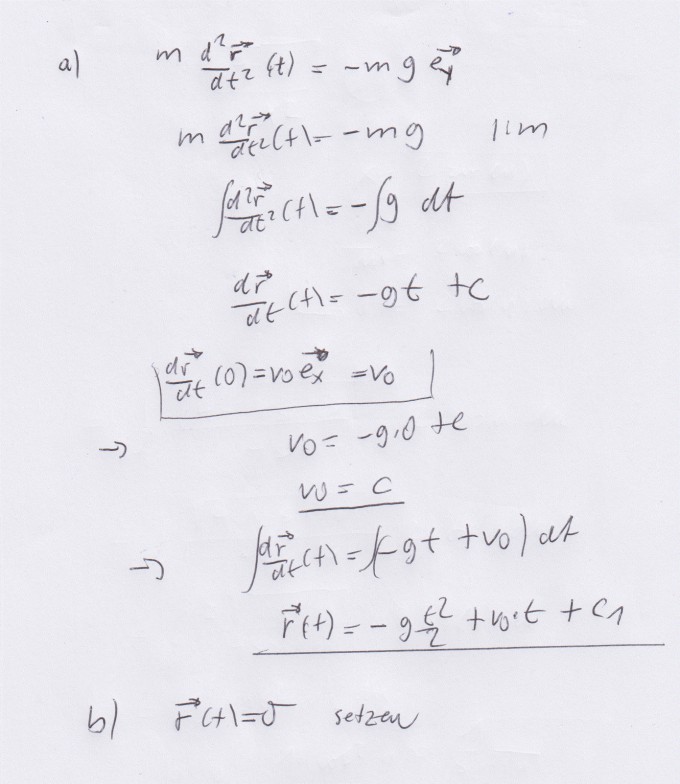 a) m d²r⃗/dt² (t) = -m g e⃗y
m d²r⃗/dt² (t) = -mg |:m
∫ d²r⃗/dt² (t) = -∫g dt
dr⃗/dt (t) = -gt +c
dr⃗/dt (0) = v0 e⃗x = v0
→ v0 = -g·0 +c
v0 = c
→ ∫ dr⃗/dt (t) = ∫(-gt +v0) dt
r⃗(t) = -g t²/2 + v0·t + c1
b) r⃗(t)=0 setzen